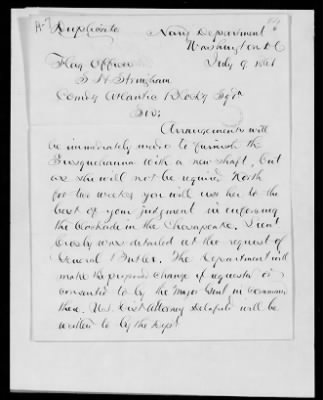 Duplicate Navy Department
Washington D.C.
Flag Officer July 9 1861
S H Stringham
Comdg Atlantic Blockg Sqdn
Sir;
Arrangements will
be immediately made to furnish the
Susquehanna with a new shaft, but
as she will not be required North
for two weeks you will use her to the
best of your judgment in enforcing
the blockade in the Chesapeake. Lieut
Crosby was detailed at the request of
General Butler. The Department will
make the proposed change if requested or
consented to by the Major Genl in command
there. U.S. Dist Attorney Delafield will be
written to by the Dept